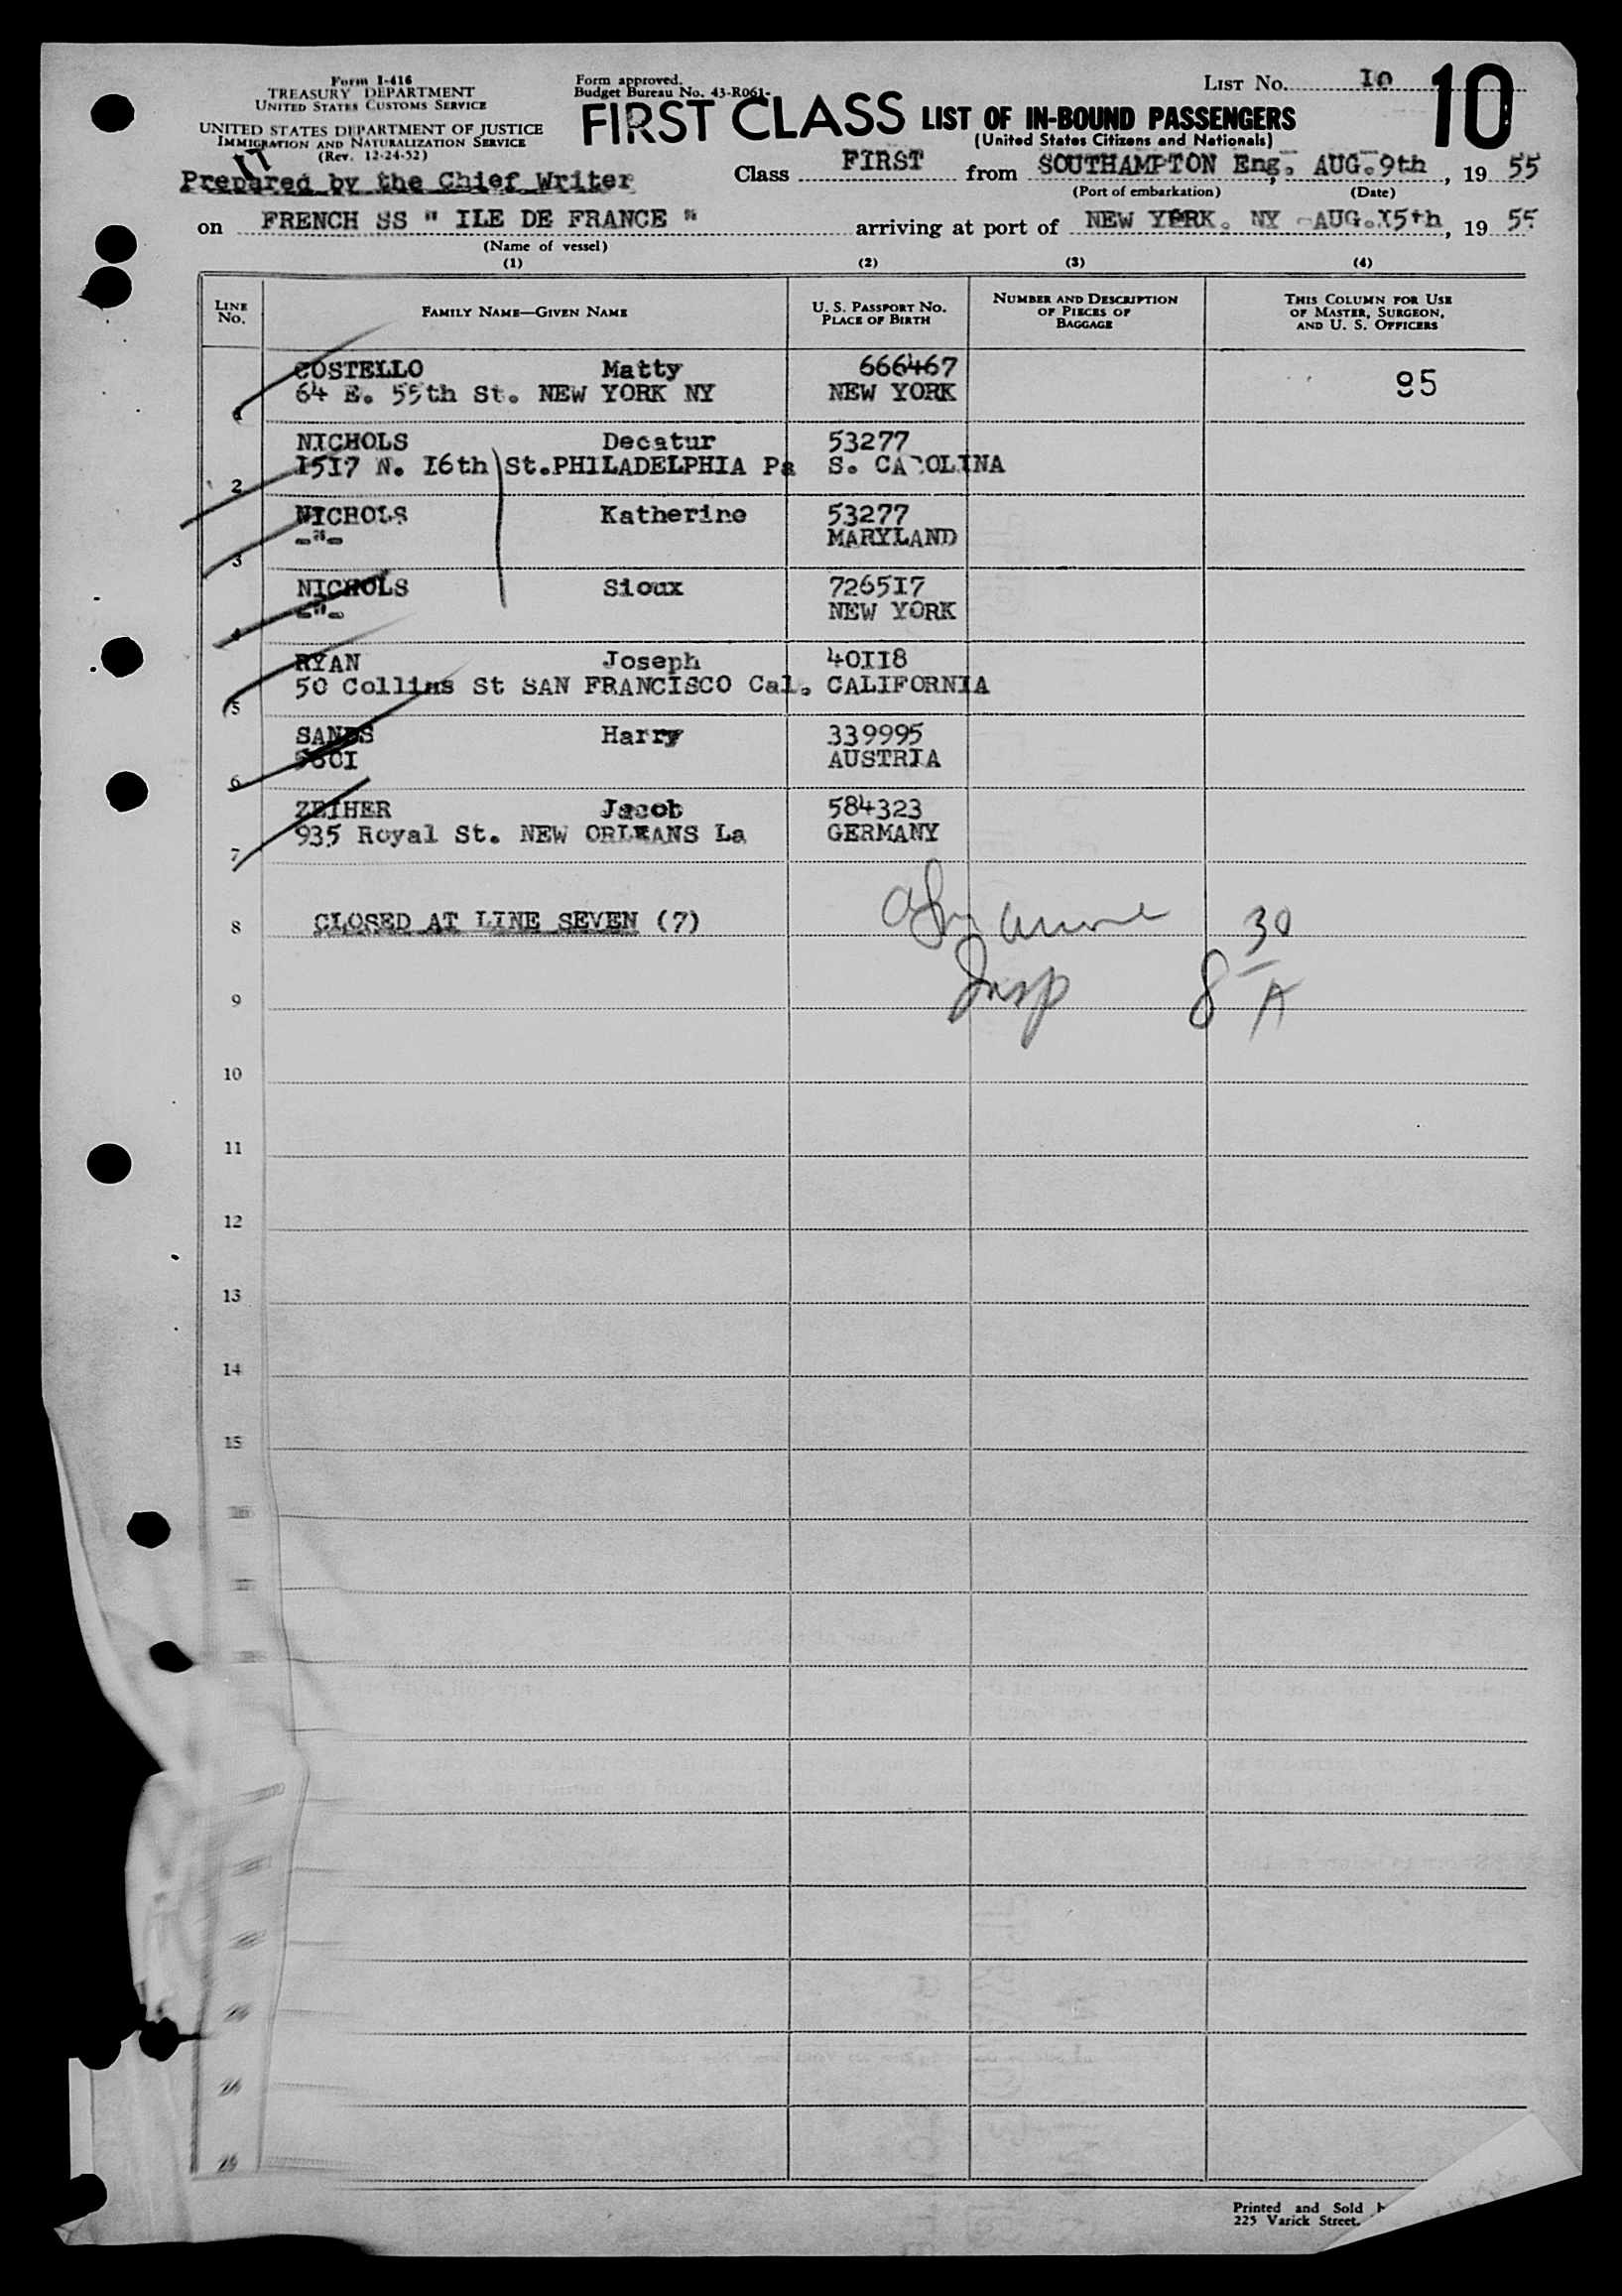 Form I-416
TREASURY DEPARTMENT
UNITED STATES CUSTOMS SERVICE
UNITED STATES DEPARTMENT OF JUSTICE
IMMIGRATION AND NATURALIZATION SERVICE
(Rev. 12-24-52)
Prepared by the Chief Writer
Form approved.
Budget Bureau No. 43-R061-
LIST No. I0 10
FIRST CLASS LIST OF IN-BOUND PASSENGERS
(United States Citizens and Nationals)
Class FIRST from SOUTHAMPTON Eng. AUG.9th, 1955
(Port of embarkation) (Date)
on FRENCH SS " ILE DE FRANCE " arriving at port of NEW YORK. NY AUG.I5th, 1955
(Name of vessel)
(1) (2) (3) (4)
LINE No. FAMILY NAME—GIVEN NAME U. S. PASSPORT NO. PLACE OF BIRTH NUMBER AND DESCRIPTION OF PIECES OF BAGGAGE THIS COLUMN FOR USE OF MASTER, SURGEON, AND U. S. OFFICERS
COSTELLO Matty 666467 95
1 64 E. 55th St. NEW YORK NY NEW YORK
NICHOLS Decatur 53277
2 I5I7 N. I6th St.PHILADELPHIA Pa S. CAROLINA
NICHOLS Katherine 53277
3 -"- MARYLAND
NICHOLS Sioux 7265I7
4 -"- NEW YORK
RYAN Joseph 40II8
5 50 Collins St SAN FRANCISCO Cal. CALIFORNIA
SANDS Harry 339995
6 AUSTRIA
ZEIHER Jacob 584323
7 935 Royal St. NEW ORLEANS La GERMANY
8 CLOSED AT LINE SEVEN (7)
Insp 8 30/A
9
10
11
12
13
14
15
Printed and Sold
225 Varick Street,